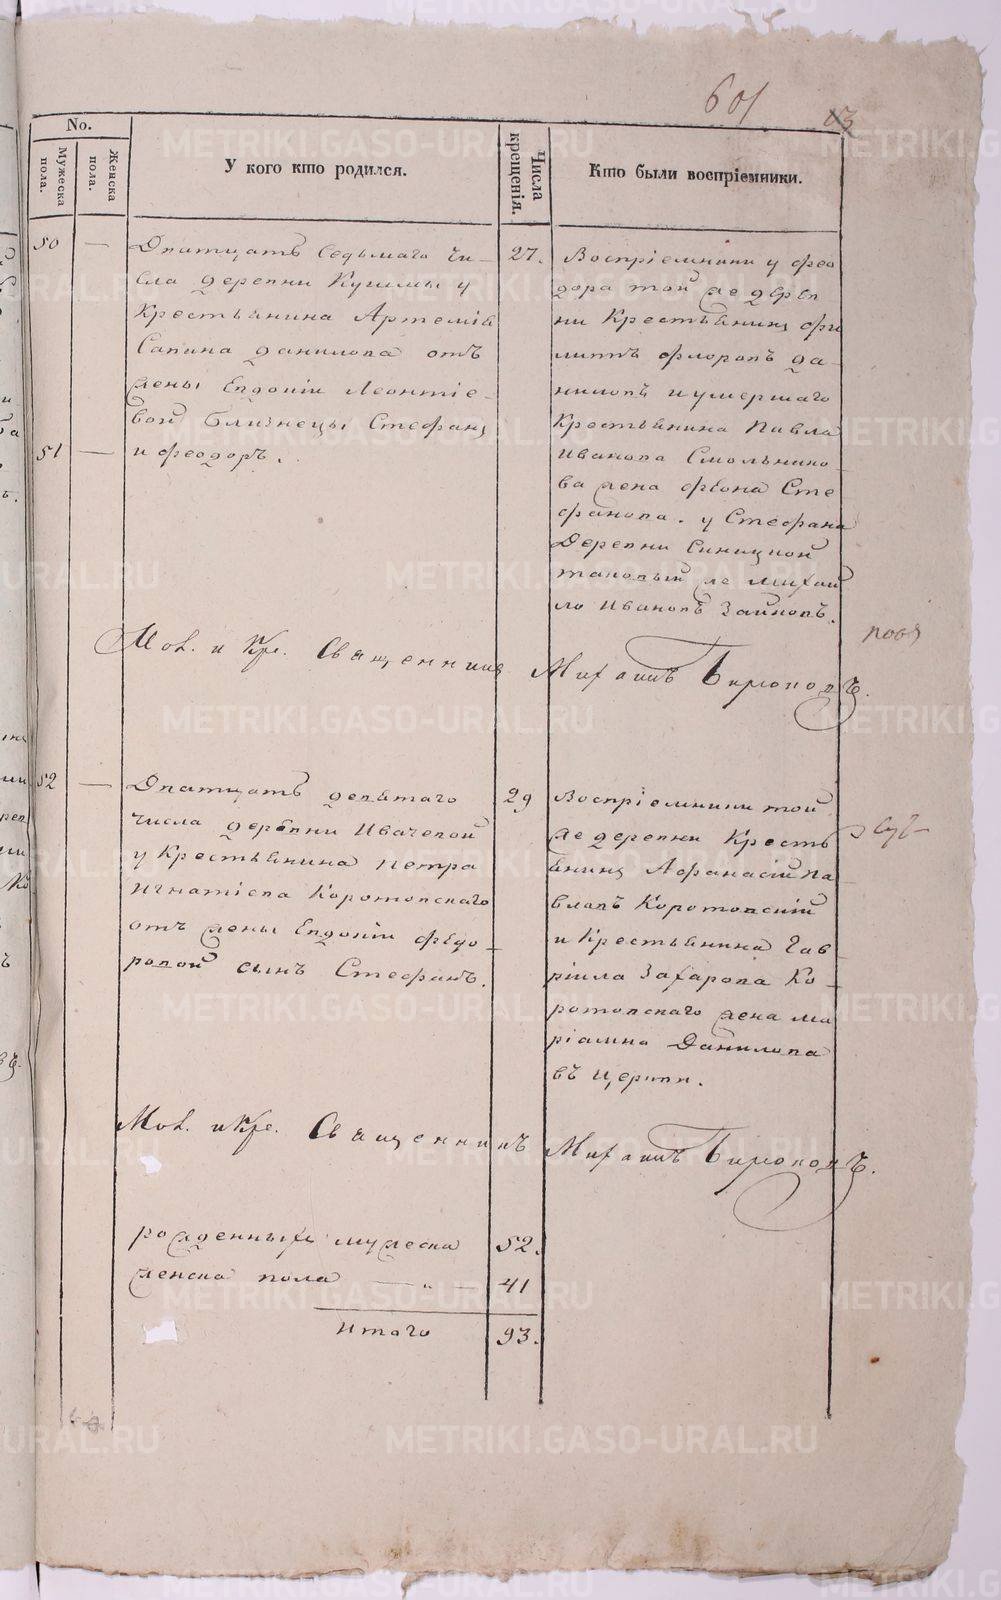 601
No.
Мужеска пола.
Женска пола.
У кого кто родился.
Числа крещенія.
Кто были воспріемники.
50 — Дватцать седьмаго чи-
сла деревни
Крестьянина Артемія
Савина Данилова отъ
жены Евдокіи Леонтіе-
вой близнецы Стефанъ
51 — и Феодоръ.
27. Воспріемники у Фео
дора той же дерев
ни Крестьянинъ Фи
липъ Флоровъ Да-
ниловъ и умершаго
Крестьянина Павла
Иванова Смольнико-
ва жена Сте
фанова. у Стефана
Деревни Синицион
таковый же Михай
ло Ивановъ
Мол. и Кре. Священникъ Михаилъ
52 — Дватцать девятаго
числа деревни Ивачевой
у Крестьянина Петра
Игнатіева Коротовскаго
отъ жены Евдокіи Федо-
ровой сынъ Стефанъ.
29 Воспріемники той
же деревни Кресть
янинъ Афанасій Па
вловъ Коротовскій
и Крестьянина Гав
ріила Захарова Ко-
ротовскаго жена Ма
ріамна Данилова
въ церкви.
Мол. и Кре. Священникъ Михаилъ
рожденныхъ мужеска 52.
женска пола — „ — 41
итого 93.
METRIKI.GASO-URAL.RU